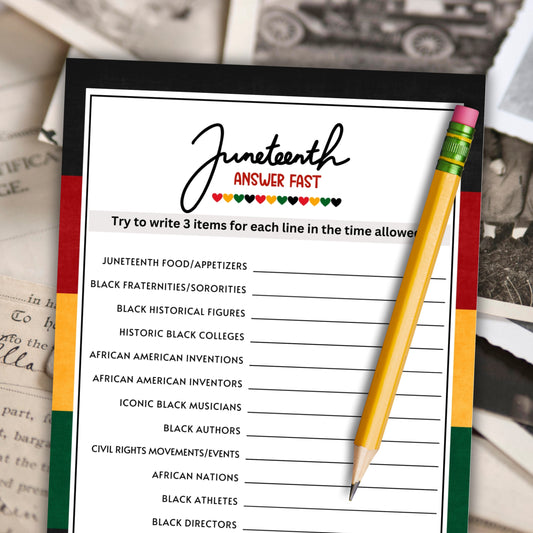 Juneteenth
ANSWER FAST
Try to write 3 items for each line in the time allowe
JUNETEENTH FOOD/APPETIZERS
BLACK FRATERNITIES/SORORITIES
BLACK HISTORICAL FIGURES
HISTORIC BLACK COLLEGES
AFRICAN AMERICAN INVENTIONS
AFRICAN AMERICAN INVENTORS
ICONIC BLACK MUSICIANS
BLACK AUTHORS
CIVIL RIGHTS MOVEMENTS/EVENTS
AFRICAN NATIONS
BLACK ATHLETES
BLACK DIRECTORS
in
To
into the
part, fo
bargai
the t
pren